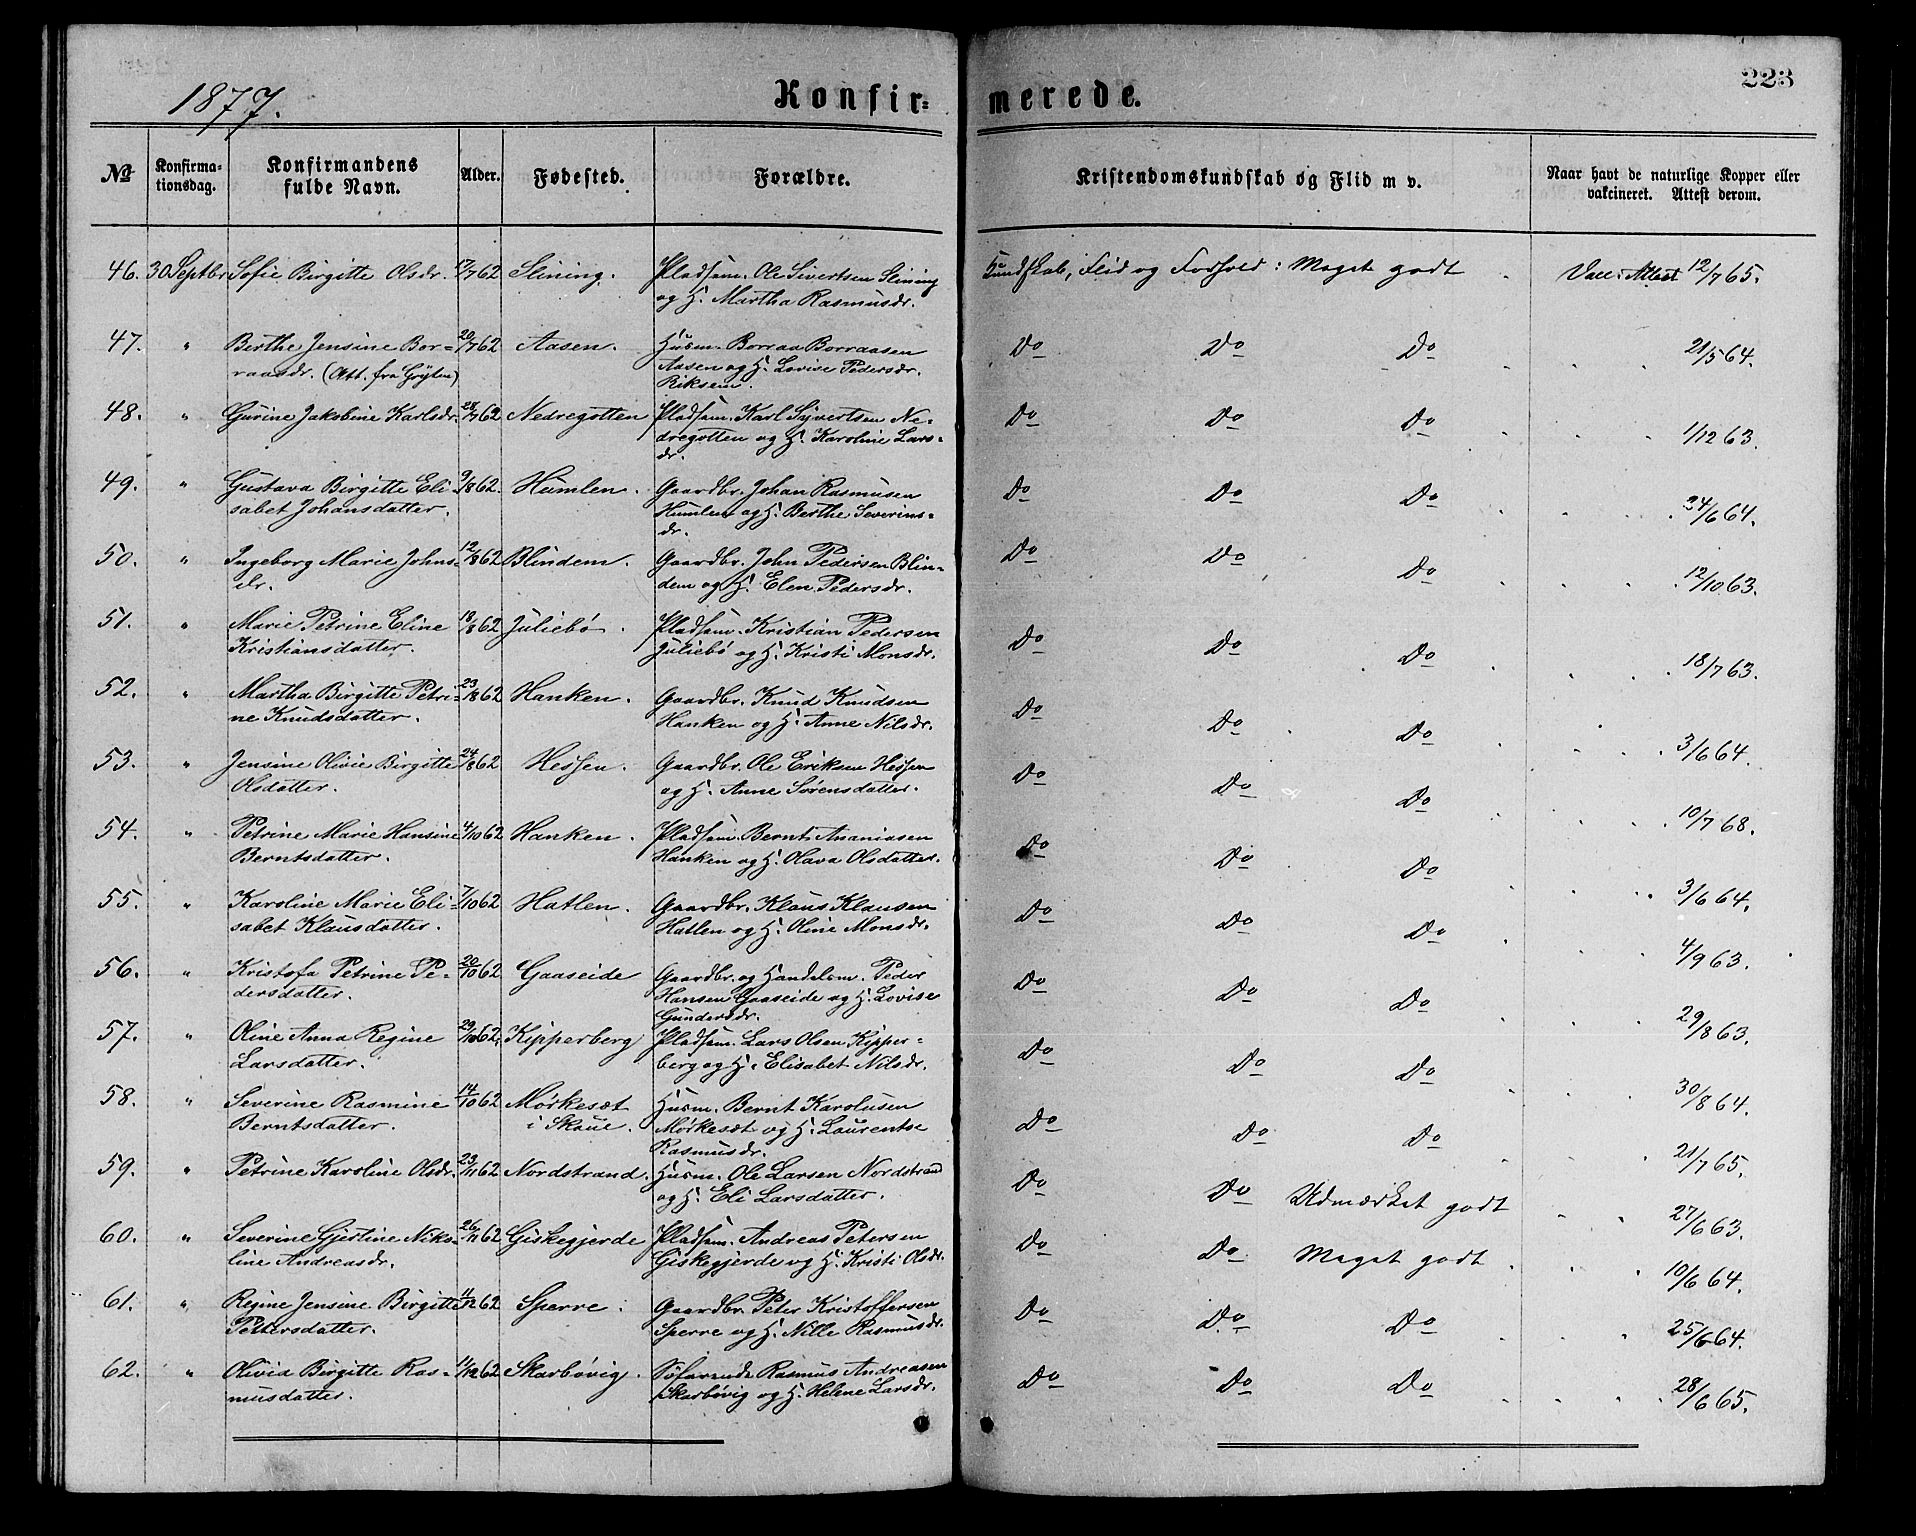 1877.
Konfir=
merede.
223
No
Konfirma=
tionsdag.
Konfirmandens
fulde Navn.
Alder.
Fødested.
Forældre.
Kristendomskundskab og Flid m v.
Naar havt de naturlige Kopper eller
vakcineret. Attest derom.
46. 30 Septbr Sofie Birgitte Olsdr. 17/7 62 Slining. Pladsm. Ole Sivertsen Slining Kundskab, Flid og Forhold: Meget godt Vacc. Attest 12/7 65.
og H. Martha Rasmusdr.
47. " Berthe Jensine Bor= 20/7 62 Aasen. Husm. Borraa Borraasen Do Do Do 21/5 64.
raasdr. (Att. fra Grytten) Aasen og H. Lovise Pedersdr.
Riksem.
48. " Gurine Jakobine Karlsdr. 28/7 62 Nedregotten Pladsm. Karl Syvertsen Ne= Do Do Do 1/12 63.
dregotten og H. Karoline Lars=
dr.
49. " Gustava Birgitte Eli= 9/8 62. Humlen. Gaardbr. Johan Rasmusen Do Do Do 24/6 64.
sabet Johansdatter. Humlen og H. Berthe Severins=
dr.
50. " Ingeborg Marie Johns= 12/8 62 Blindem. Gaardbr. John Pedersen Blin= Do Do Do 12/10 63.
dr. dem og H. Elen Pedersdr.
51. " Marie Petrine Eline 18/8 62 Juliebø. Pladsm. Kristian Pedersen Do Do Do 18/7 63.
Kristiansdatter. Juliebø og H. Kristi Monsdr.
52. " Martha Birgitte Petri= 23/8 62 Hanken. Gaardbr. Knud Knudsen Do Do Do 3/6 64.
ne Knudsdatter. Hanken og H. Anne Nilsdr.
53. " Jensine Olivie Birgitte 24/8 62 Hessen. Gaardbr. Ole Eriksen Hessen Do Do Do 10/7 68.
Olsdatter. og H. Anne Sørensdatter.
54. " Petrine Marie Hansine 4/10 62 Hanken. Pladsm. Bernt Ananiasen Do Do Do 3/6 64.
Berntsdatter. Hanken og H. Olava Olsdatter.
55. " Karoline Marie Eli= 7/10 62 Hatlen. Gaardbr. Klaus Klausen Do Do Do 4/9 63.
sabet Klausdatter. Hatlen og H. Oline Monsdr.
56. " Kristofa Petrine Pe= 20/10 62 Gaaseide Gaardbr. og Handelsm. Peder Do Do Do 29/8 63.
dersdatter. Hansen Gaaseide og H. Lovise
Gundersdr.
57. " Oline Anna Regine 29/10 62. Kipperberg Pladsm. Lars Olsen Kipper= Do Do Do 30/8 64.
Larsdatter. berg og H. Elisabet Nilsdr.
58. " Severine Rasmine 14/10 62 Mørkesæt Husm. Bernt Karolusen Do Do Do 21/7 65.
Berntsdatter. i Skoue. Mørkesæt og H. Laurentse
Rasmusdr.
59. " Petrine Karoline Olsdr. 23/11 62 Nordstrand. Husm. Ole Larsen Nordstrand Do Do Udmærket godt 27/6 63.
og H. Eli Larsdatter.
60. " Severine Gjertine Niko= 26/11 62 Giskegjerde Pladsm. Andreas Petersen Do Do Meget godt 10/6 64.
line Andreasdr. Giskegjerde og H. Kristi Olsdr.
61. " Regine Jensine Birgitte 11/12 62 Sperre. Gaardbr. Peter Kristoffersen Do Do Do 25/6 64.
Petersdatter. Sperre og H. Nille Rasmusdr.
62. " Olivia Birgitte Ras= 11/12 62 Skarbøvig. Søfarende Rasmus Andreasen Do Do Do 28/6 65.
musdatter. Skarbøvig og H. Helene Larsdr.